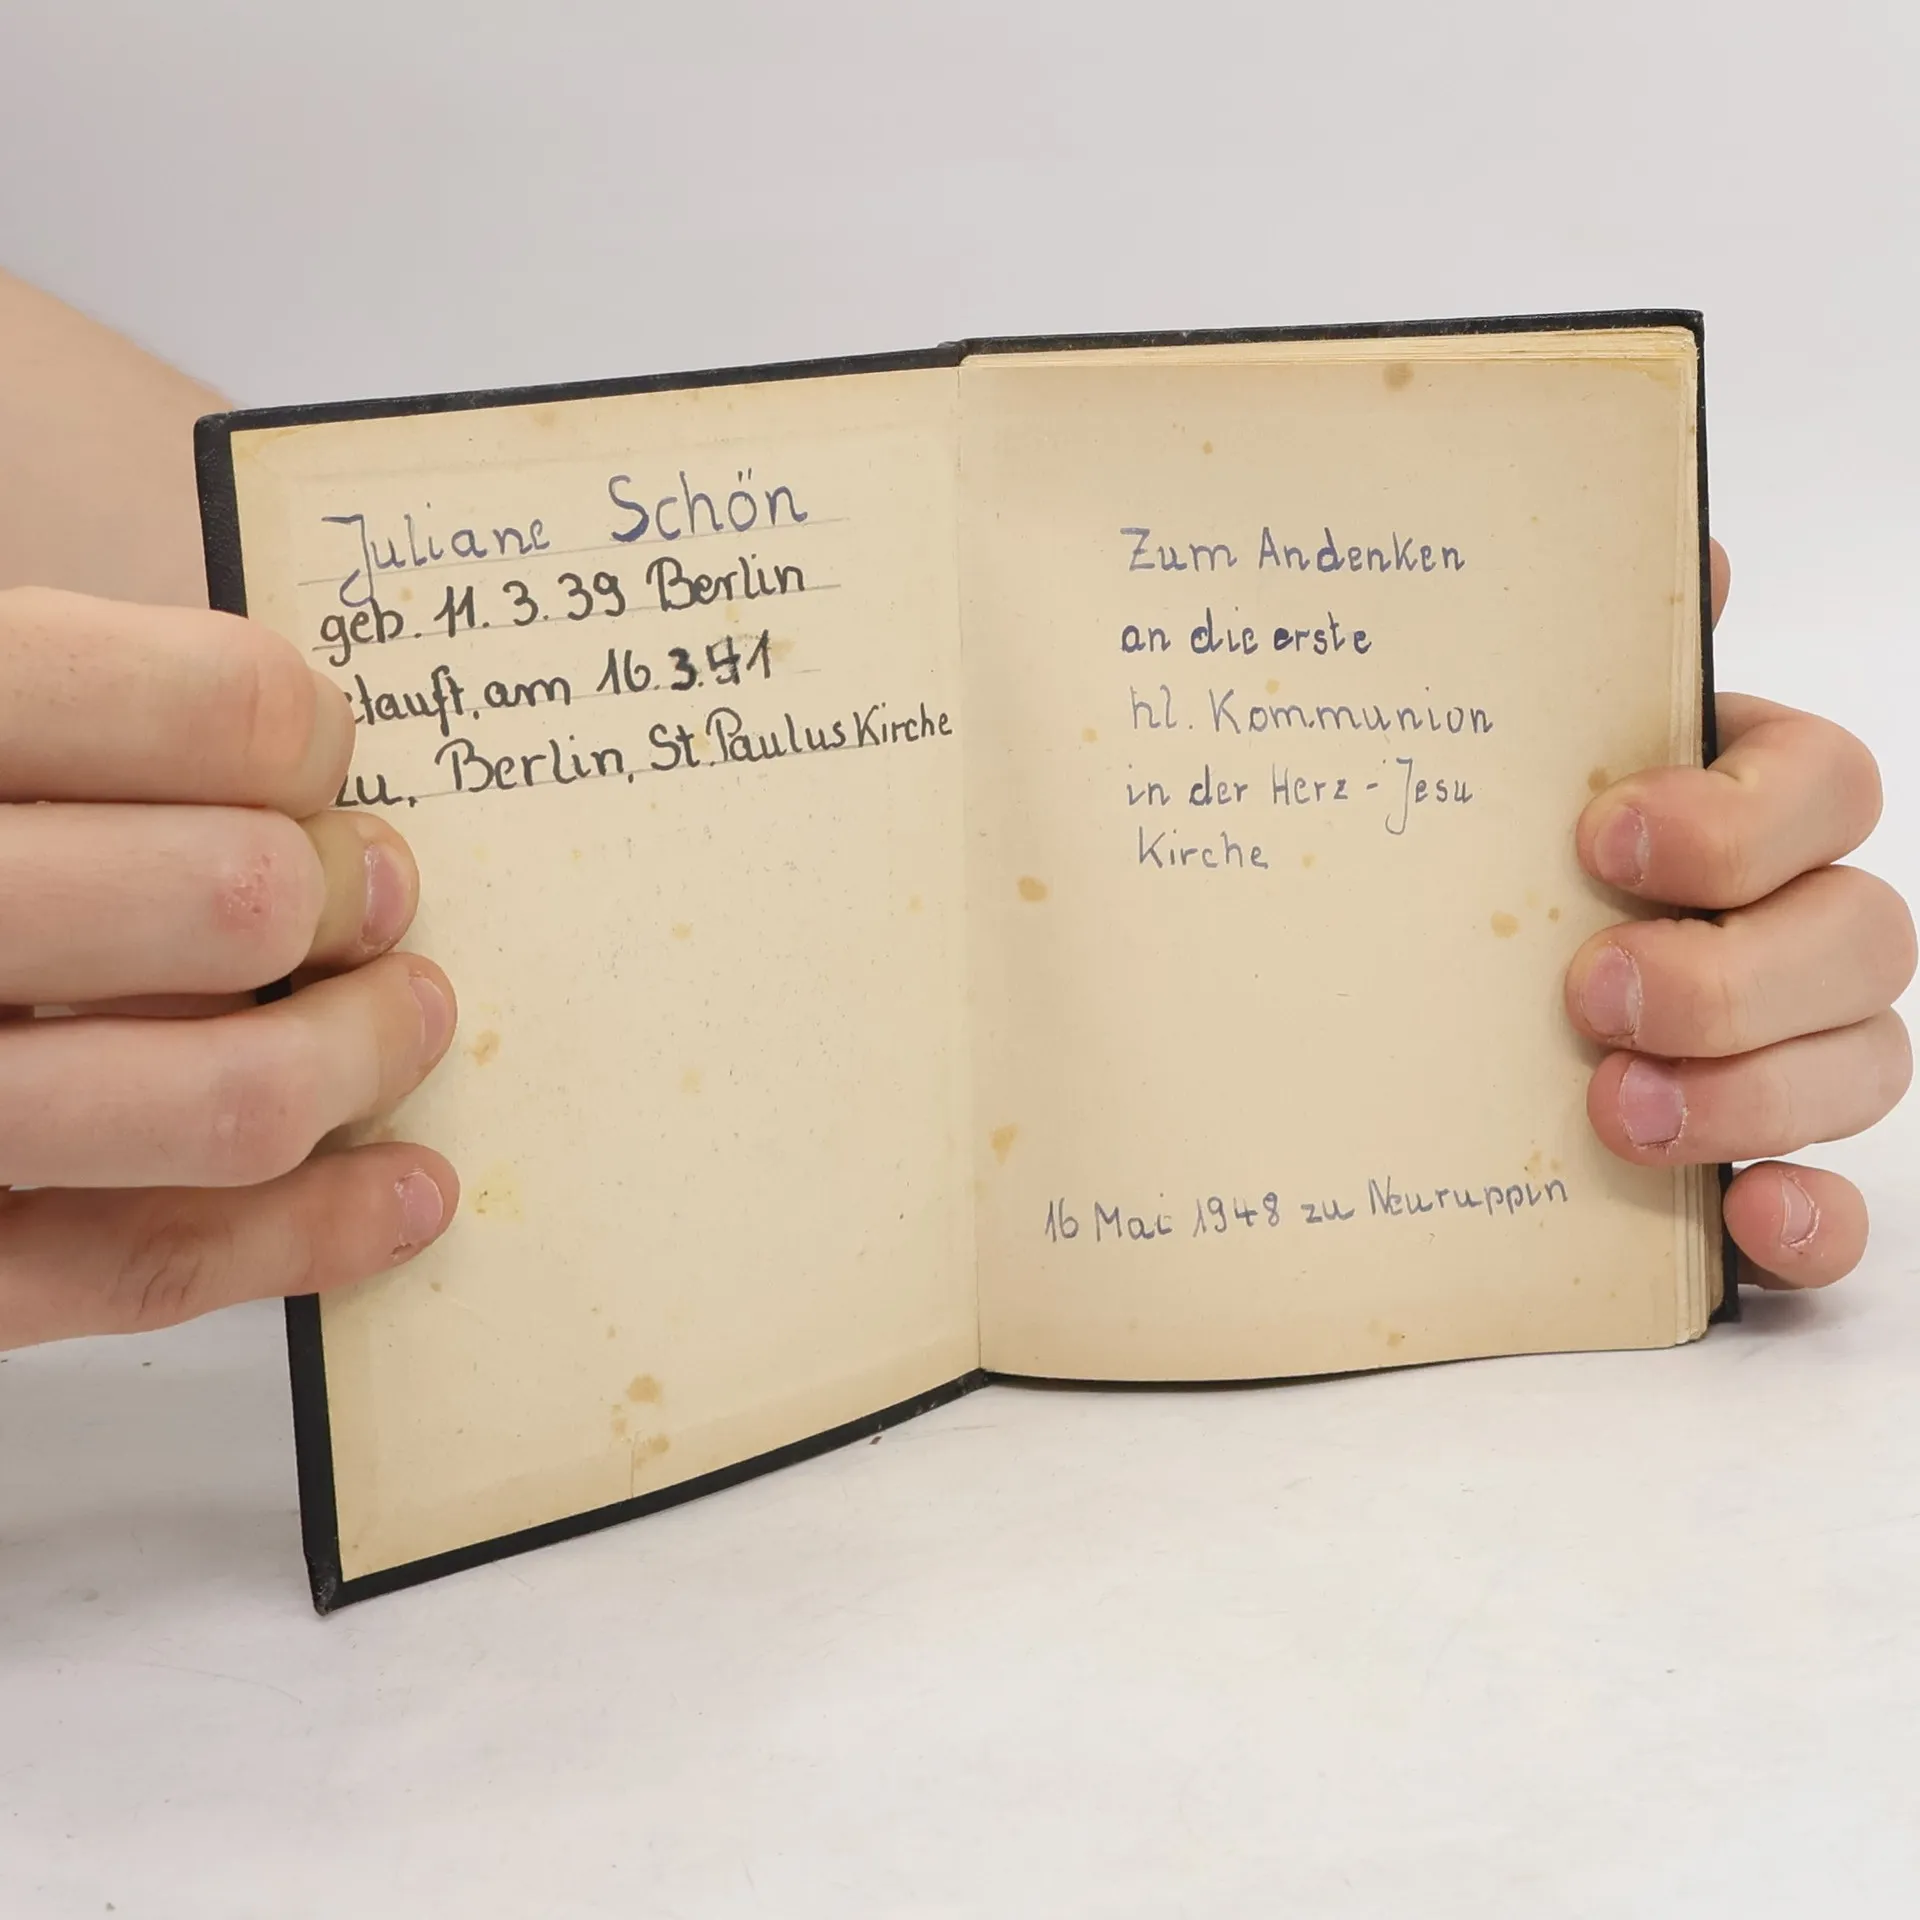 Juliane Schön
geb. 11.3.39 Berlin
tauft. am 16.3.41
zu, Berlin, St. Paulus Kirche
Zum Andenken
an die erste
hl. Kommunion
in der Herz-Jesu
Kirche
16 Mai 1948 zu Neuruppin